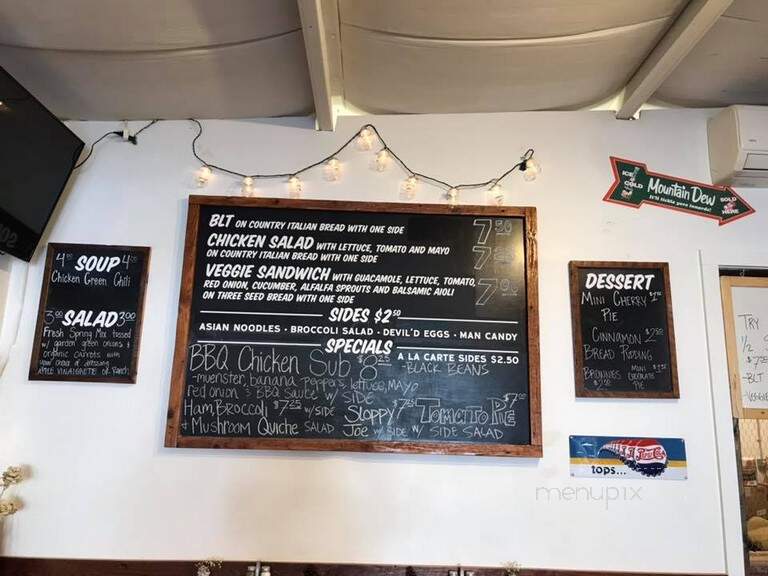 4.00 SOUP 4.00
Chicken Green Chili
3.00 SALAD 3.00
Fresh Spring Mix tossed
w/ garden green onions &
organic carrots with
your choice of dressing
APPLE VINAIGRETTE or Ranch
BLT ON COUNTRY ITALIAN BREAD WITH ONE SIDE 7.50
CHICKEN SALAD WITH LETTUCE, TOMATO AND MAYO
ON COUNTRY ITALIAN BREAD WITH ONE SIDE
VEGGIE SANDWICH WITH GUACAMOLE, LETTUCE, TOMATO,
RED ONION, CUCUMBER, ALFALFA SPROUTS AND BALSAMIC AIOLI
ON THREE SEED BREAD WITH ONE SIDE
SIDES $2.50
ASIAN NOODLES • BROCCOLI SALAD • DEVIL'D EGGS • MAN CANDY
SPECIALS
A LA CARTE SIDES $2.50
-BLACK BEANS
BBQ Chicken Sub $8.25
-muenster, banana peppers, lettuce, MAYO
red onion & BBQ sauce w/ SIDE
Ham, Broccoli $7.25 w/ SIDE
& Mushroom Quiche SALAD
Sloppy 7.25
Joe w/ SIDE
TOMATO PIE $7.00
W/ SIDE SALAD
DESSERT
MINI CHERRY
PIE
CINNAMON 2.50
BREAD PUDDING
BROWNIES
MINI
CHOCOLATE
PIE
ICE COLD
Mountain Dew
It'll tickle yore innards!
SOLD HERE
tops...
TRY
1/2
-BLT
-VEGGIE
menupix